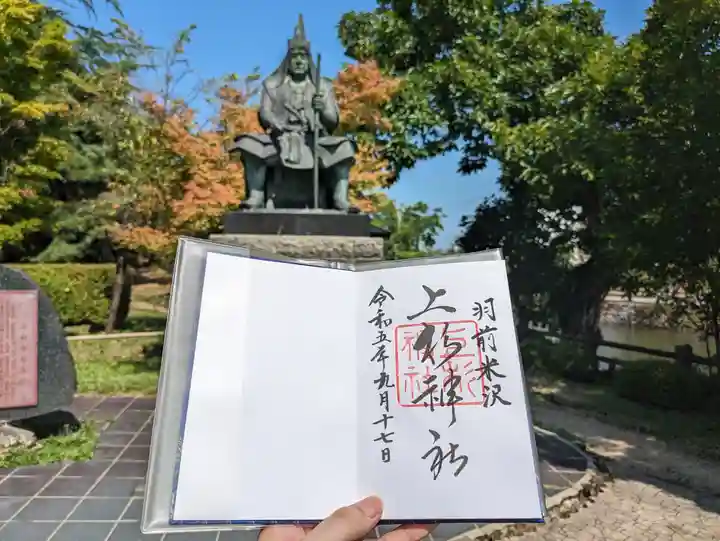 羽前米沢
上杉神社
上杉神社
令和五年九月十七日